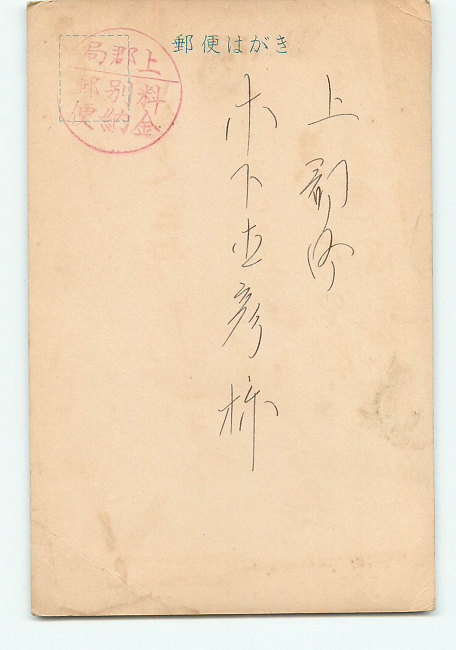 郵便はがき
上郡局
料金
別納
郵便
上郡
木下彦様